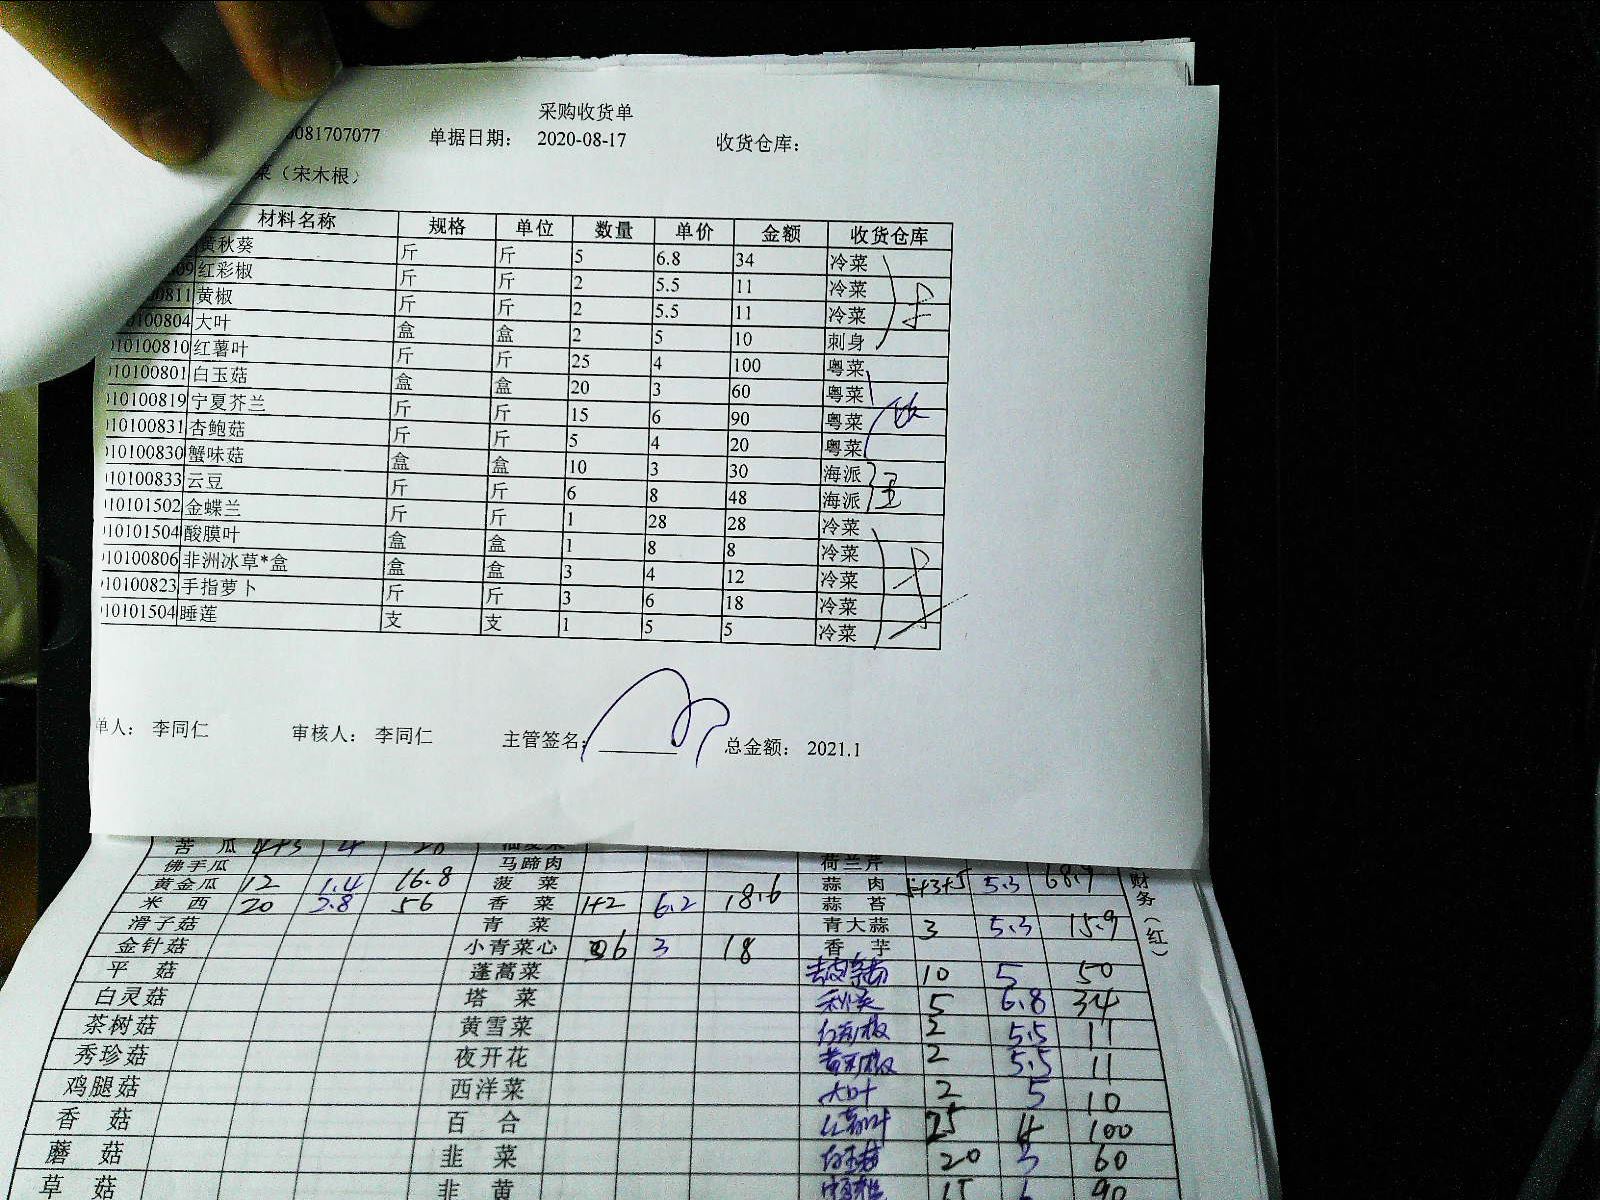 采购收货单
081707077 单据日期： 2020-08-17 收货仓库：
菜（宋木根）
材料名称 规格 单位 数量 单价 金额 收货仓库
黄秋葵 斤 斤 5 6.8 34 冷菜
09 红彩椒 斤 斤 2 5.5 11 冷菜
0811 黄椒 斤 斤 2 5.5 11 冷菜
0100804 大叶 盒 盒 2 5 10 刺身
010100810 红薯叶 斤 斤 25 4 100 粤菜
010100801 白玉菇 盒 盒 20 3 60 粤菜
010100819 宁夏芥兰 斤 斤 15 6 90 粤菜
010100831 杏鲍菇 斤 斤 5 4 20 粤菜
010100830 蟹味菇 盒 盒 10 3 30 海派
010100833 云豆 斤 斤 6 8 48 海派
010101502 金蝶兰 斤 斤 1 28 28 冷菜
010101504 酸膜叶 盒 盒 1 8 8 冷菜
010100806 非洲冰草*盒 盒 盒 3 4 12 冷菜
010100823 手指萝卜 斤 斤 3 6 18 冷菜
010101504 睡莲 支 支 1 5 5 冷菜
单人： 李同仁 审核人： 李同仁 主管签名： 总金额： 2021.1
苦 瓜 4+3 4 28
佛手瓜 马蹄肉 荷兰芹
黄金瓜 12 1.4 16.8 菠 菜 蒜 肉 5+3+5 5.3 68.9
米 西 20 2.8 56 香 菜 1+2 6.2 18.6 蒜 苔
滑子菇 青 菜 青大蒜 3 5.3 15.9
金针菇 小青菜心 6 3 18 香 芋
平 菇 蓬蒿菜 10 5 50
白灵菇 塔 菜 秋葵 5 6.8 34
茶树菇 黄雪菜 2 5.5 11
秀珍菇 夜开花 2 5.5 11
鸡腿菇 西洋菜 大叶 2 5 10
香 菇 百 合 红薯叶 25 4 100
蘑 菇 韭 菜 白玉菇 20 3 60
草 菇 韭 黄 15 6 90
财务（红）